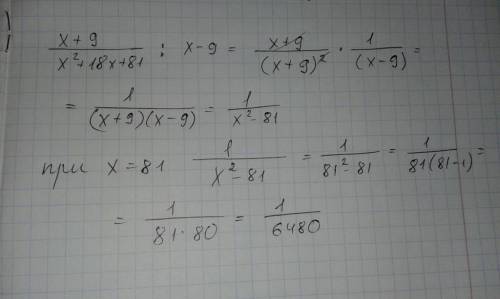 x+9 / x²+18x+81 : x-9 = x+9 / (x+9)² · 1 / (x-9) =
= 1 / (x+9)(x-9) = 1 / x²-81
при x=81 1 / x²-81 = 1 / 81²-81 = 1 / 81(81-1) =
= 1 / 81·80 = 1 / 6480